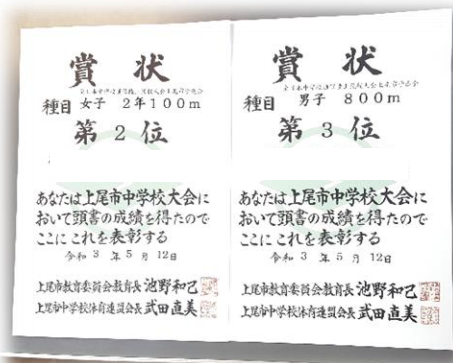 賞状
種目 女子 2年100m
第2位
あなたは上尾市中学校大会に
おいて頭書の成績を得たので
ここにこれを表彰する
令和3年5月12日
上尾市教育委員会教育長 池野和己
上尾市中学校体育連盟会長 武田直美
賞状
種目 男子 800m
第3位
あなたは上尾市中学校大会に
おいて頭書の成績を得たので
ここにこれを表彰する
令和3年5月12日
上尾市教育委員会教育長 池野和己
上尾市中学校体育連盟会長 武田直美